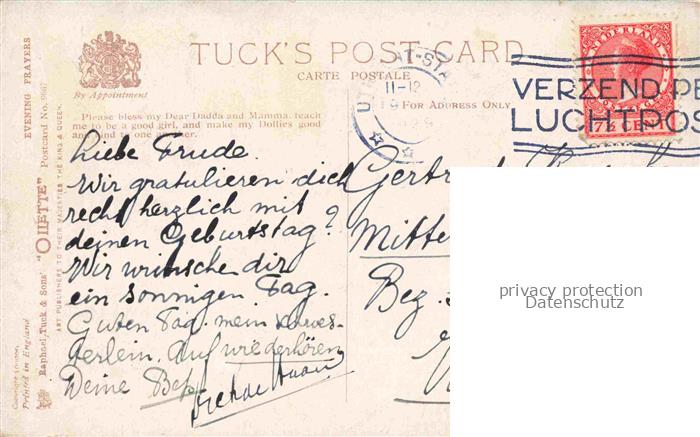 TUCK'S POST CARD
CARTE POSTALE
By Appointment
FOR ADDRESS ONLY
EVENING PRAYERS
Raphael Tuck & Sons' "OILETTE" Postcard No.
ART PUBLISHERS TO THEIR MAJESTIES THE KING & QUEEN.
Printed in England
Please bless my Dear Dadda and Mamma, teach
me to be a good girl, and make my Dollies good
and kind to one another.
11-12
NEDERLAND
7½ CENT
VERZEND PE
LUCHTPOS
Liebe Trude.
Wir gratulieren dich
recht herzlich mit
deinen Geburtstag?
Wir wünsche dir
ein sonnigen Tag.
Guten Tag. mein
Auf wiederhören
Deine Bep
Mitte
Bez.
privacy protection
Datenschutz